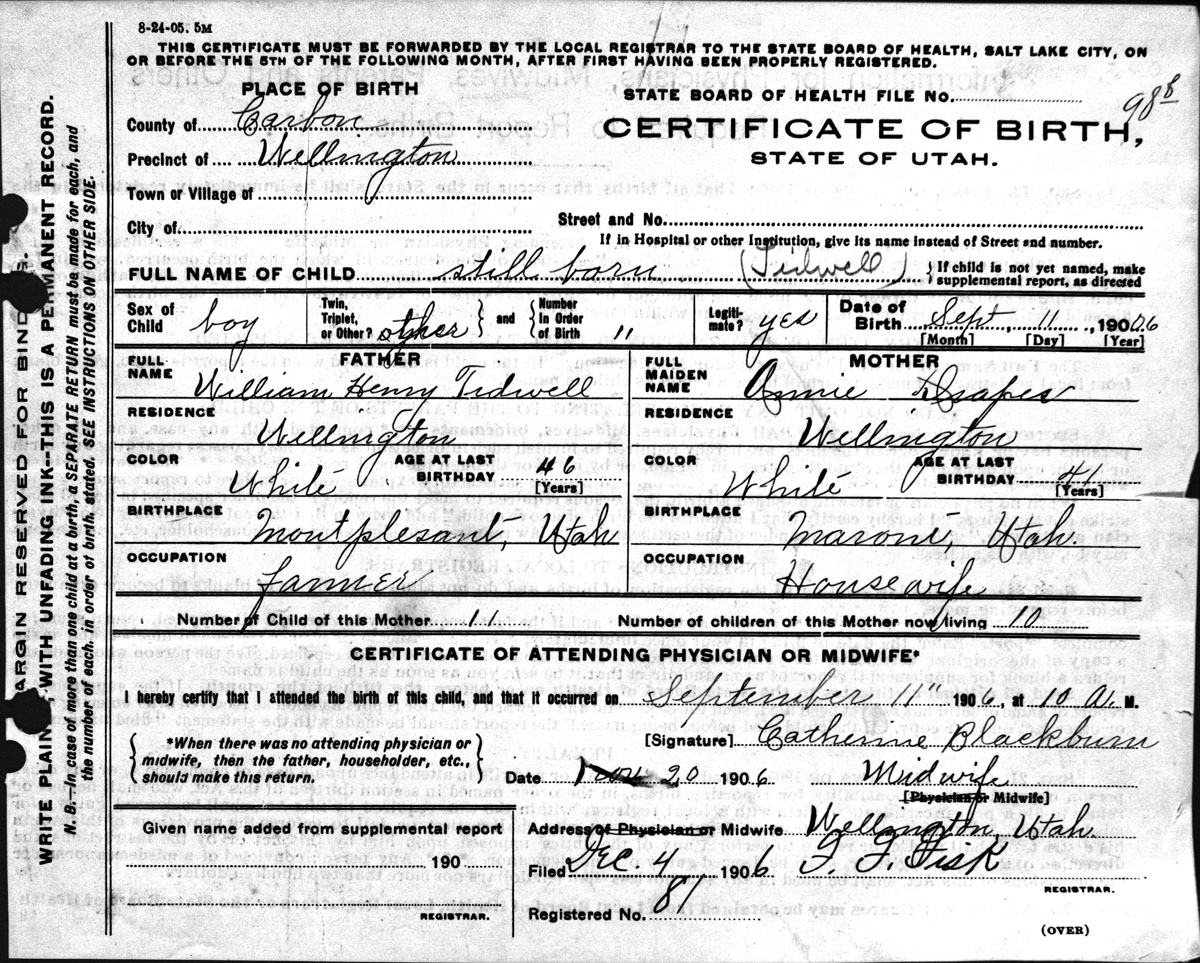 8-24-05. 5M
THIS CERTIFICATE MUST BE FORWARDED BY THE LOCAL REGISTRAR TO THE STATE BOARD OF HEALTH, SALT LAKE CITY, ON
OR BEFORE THE 5TH OF THE FOLLOWING MONTH, AFTER FIRST HAVING BEEN PROPERLY REGISTERED.
PLACE OF BIRTH
STATE BOARD OF HEALTH FILE NO.
County of Carbon
CERTIFICATE OF BIRTH,
Precinct of Wellington
STATE OF UTAH.
Town or Village of
City of
Street and No.
If in Hospital or other Institution, give its name instead of Street and number.
FULL NAME OF CHILD still born (Tidwell) } If child is not yet named, make supplemental report, as directed
Sex of Child boy Twin, Triplet, or Other? other } and { Number in Order of Birth 11 Legitimate? yes Date of Birth Sept 11, 1906
[Month] [Day] [Year]
FATHER
MOTHER
FULL NAME William Henry Tidwell
FULL MAIDEN NAME Annie Draper
RESIDENCE Wellington
RESIDENCE Wellington
COLOR White AGE AT LAST BIRTHDAY 46 [Years]
COLOR White AGE AT LAST BIRTHDAY 41 [Years]
BIRTHPLACE Montplesant, Utah
BIRTHPLACE Maroni, Utah.
OCCUPATION Farmer
OCCUPATION Housewife
Number of Child of this Mother 11 Number of children of this Mother now living 10
CERTIFICATE OF ATTENDING PHYSICIAN OR MIDWIFE*
I hereby certify that I attended the birth of this child, and that it occurred on September 11" 1906, at 10 A. M.
{ *When there was no attending physician or midwife, then the father, householder, etc., should make this return. }
[Signature] Catherine Blackburn
Date Nov 20 1906. Midwife
[Physician or Midwife]
Given name added from supplemental report
190
REGISTRAR.
Address of Physician or Midwife Wellington, Utah.
Filed Dec 4 1906.
REGISTRAR.
Registered No. 81
(OVER)
MARGIN RESERVED FOR BINDING.
WRITE PLAINLY, WITH UNFADING INK--THIS IS A PERMANENT RECORD.
N. B.--In case of more than one child at a birth, a SEPARATE RETURN must be made for each, and
the number of each, in order of birth, stated. SEE INSTRUCTIONS ON OTHER SIDE.